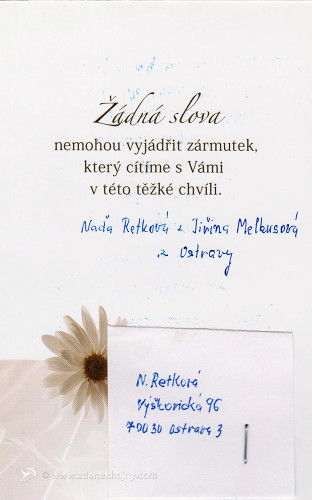 Žádná slova
nemohou vyjádřit zármutek,
který cítíme s Vámi
v této těžké chvíli.
Naďa Retková a Jiřina Melbusová
z Ostravy
N. Retková
Výškovická 96
70030 Ostrava 3
© www.zdenekhajny.com